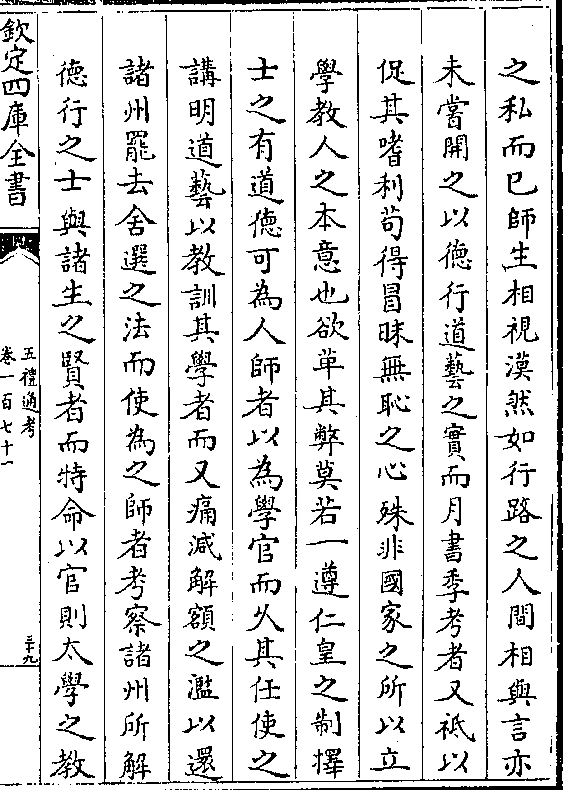 之私而已師生相視漠然如行路之人間相與言亦
未嘗開之以德行道藝之實而月書季考者又祗以
促其嗜利苟得冒昧無恥之心殊非國家之所以立
學教人之本意也欲革其弊莫若一遵仁皇之制擇
士之有道德可為人師者以為學官而久其任使之
講明道藝以教訓其學者而又痛減解額之濫以還
諸州罷去舍選之法而使為之師者考察諸州所解
德行之士與諸生之賢者而特命以官則太學之教
欽定四庫全書
五禮通考
卷一百七十一
三十九